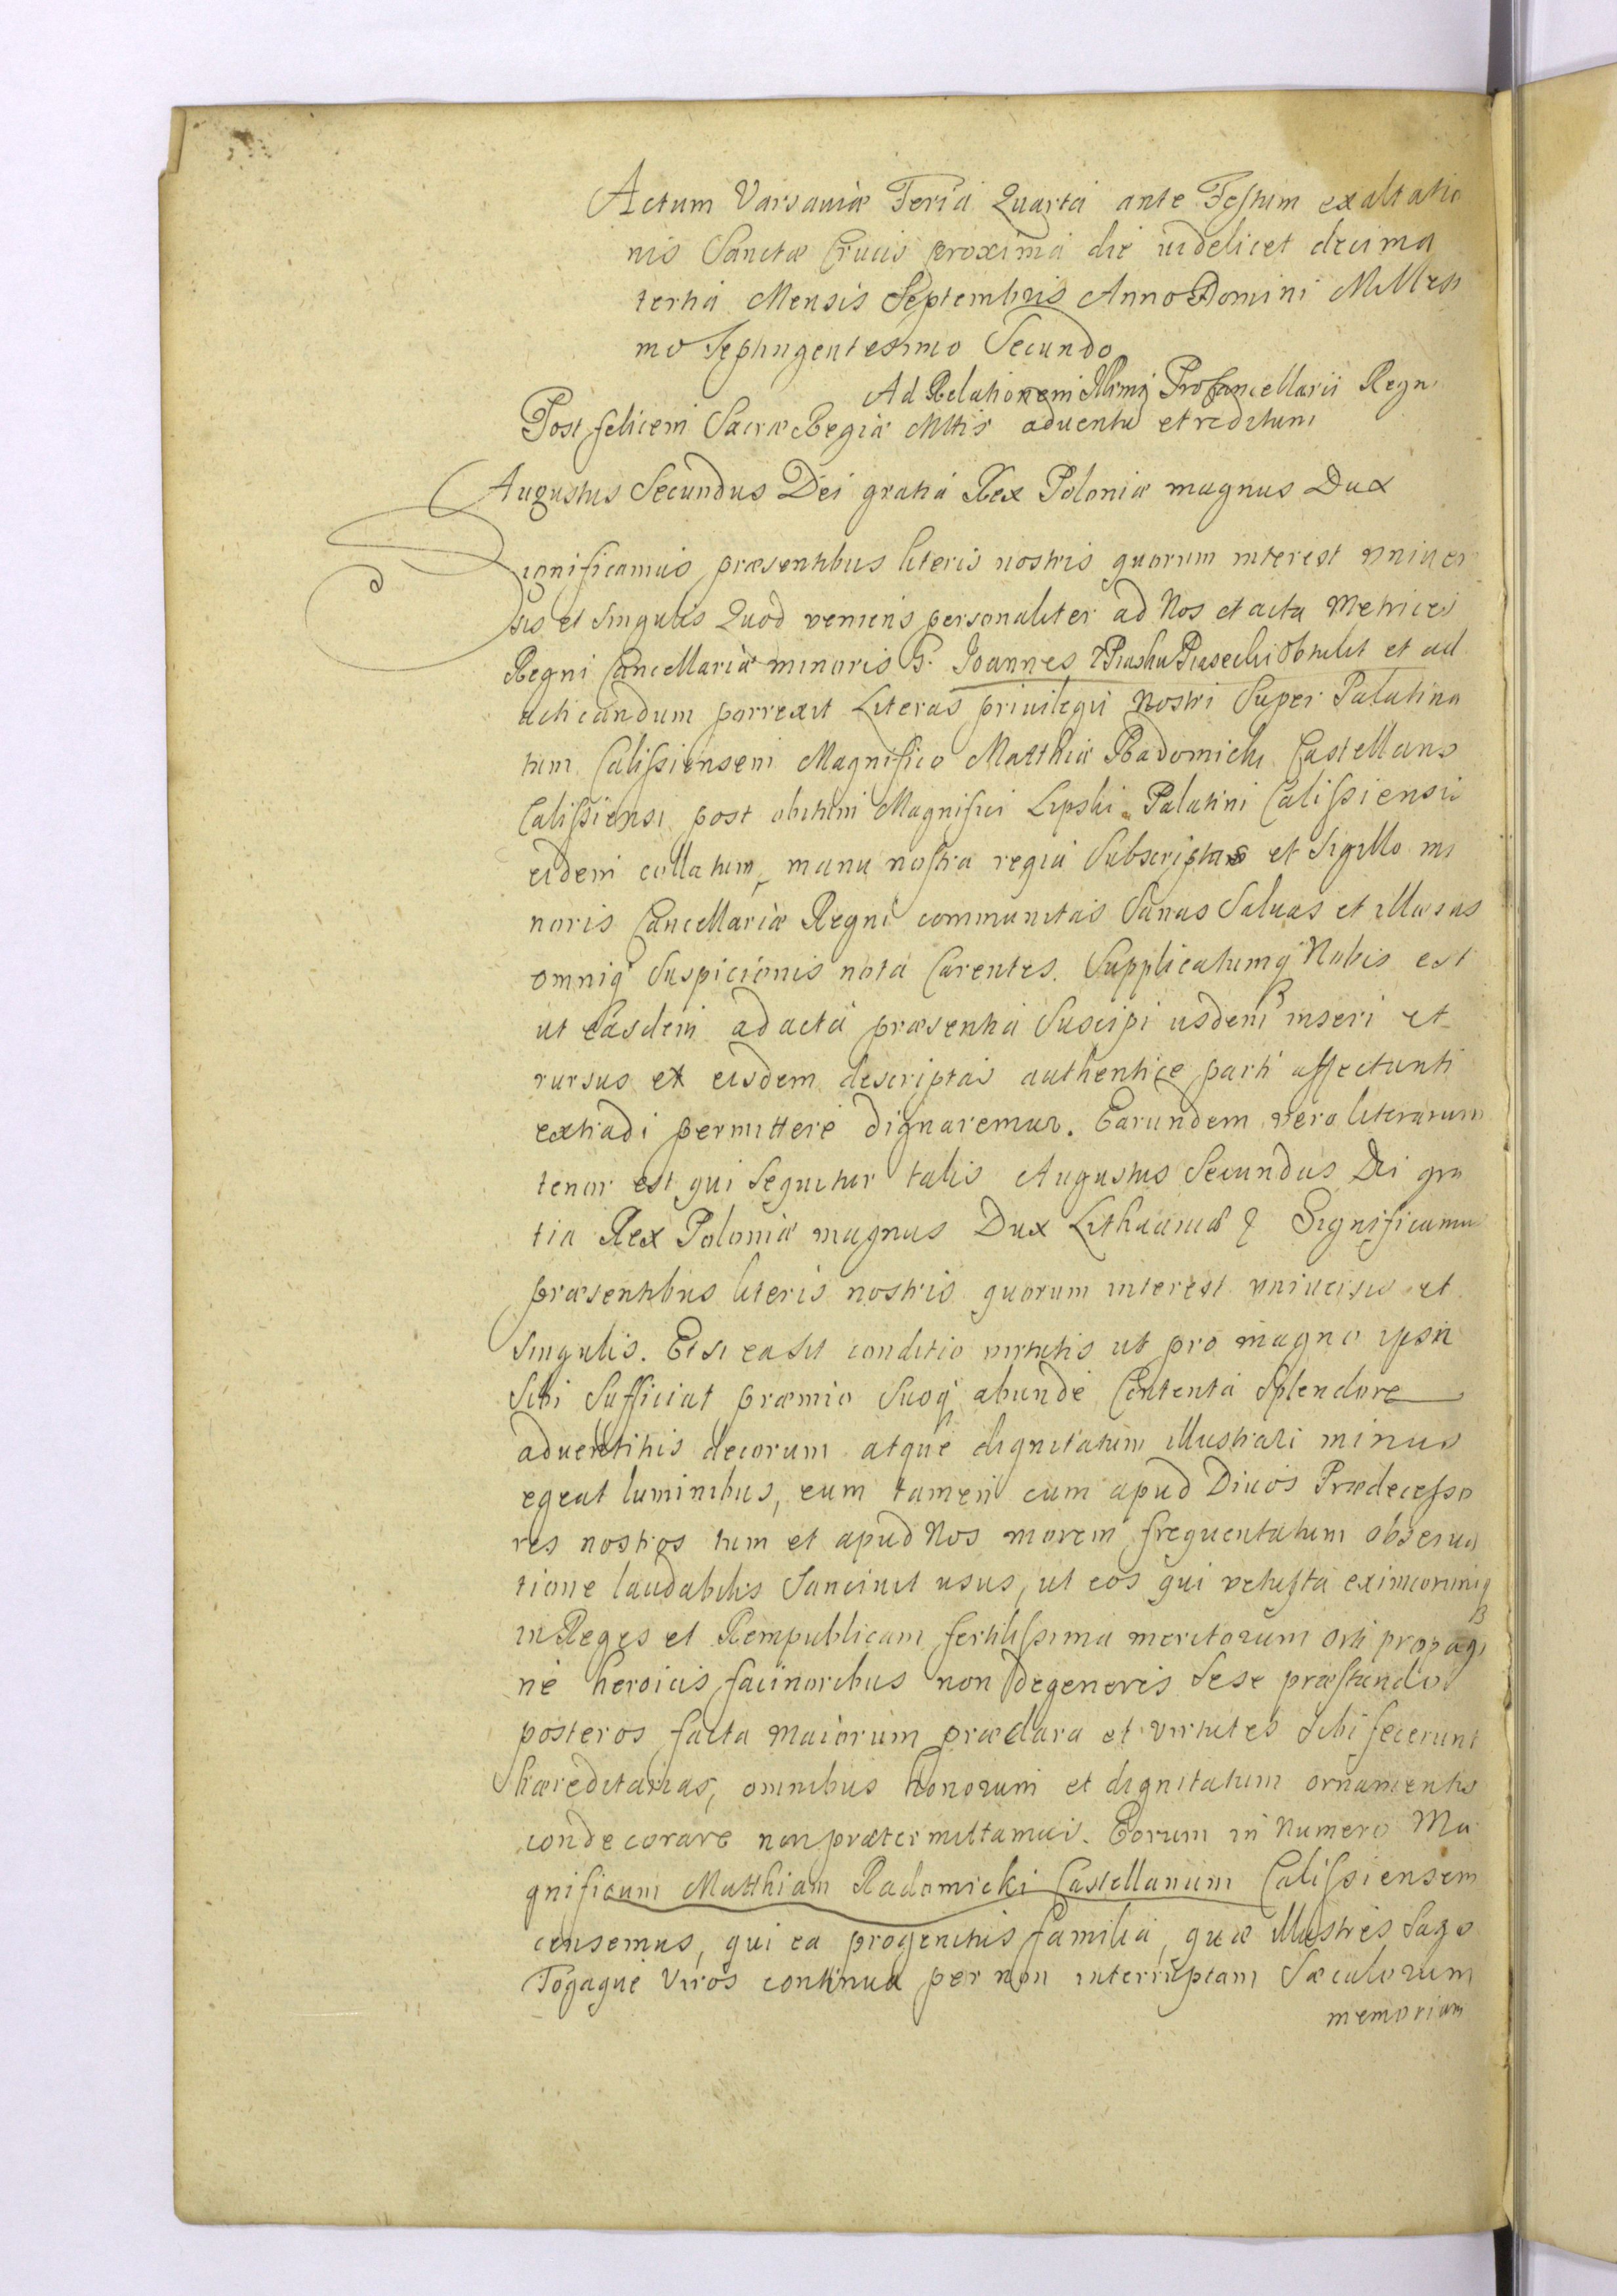 Actum Varsaviæ Feria Quarta ante Festum exaltatio
nis Sanctæ Crucis proxima die videlicet decima
tertia Mensis Septembris Anno Domini Millesi
mo Septingentesimo Secundo
Ad Relationem Illrmi ProCancellarii Regni
Post felicem Sacræ Regiæ Mttis adventu et reditum
Augustus Secundus Dei gratia Rex Poloniæ magnus Dux
Significamus præsentibus literis nostris quorum interest univer
sis et singulis Quod veniens personaliter ad Nos et acta Metrices
Regni Cancellariæ minoris G. Joannes Piasecki obtulit et ad
acticandum porrexit Literas privilegii Nostri Super Palatina
tum Calissiensem Magnifico Matthiæ Radomicki Castellano
Calissiensi post obitum Magnifici Lipski Palatini Calissiensis
eidem collatum, manu nostra regia Subscriptas et Sigillo mi
noris Cancellariæ Regni communitas Sanas Salvas et illæsas
omniq Suspicionis nota Carentes. Supplicatumq Nobis est
ut Easdem ad acta præsentia Suscipi iisdem inseri et
rursus ex eisdem descriptas authentice parti affectanti
extradi permittere dignaremur. Earundem vero literarum
tenor est qui Sequitur talis Augustus Secundus Dei gra
tia Rex Poloniæ magnus Dux Lithuaniæ Significamus
præsentibus literis nostris quorum interest universis et
Singulis. Etsi ea sit conditio virtutis ut pro magno ipsa
Sibi Sufficiat præmio Suoq abunde Contenta Splendore
adventitiis decorum atque dignitatum illustrari minus
egeat luminibus, eum tamen cum apud Divos Prædecesso
res nostros tum et apud Nos morem frequentatum observa
tione laudabilis Sancivit usus, ut eos qui vetusta eximiorumq
in Reges et Rempublicam fertilissima meritorum orti propagi
ne heroicis facinoribus non degeneres Sese præstando
posteros facta Maiorum præclara et virtutes Sibi fecerunt
hæreditarias, omnibus honorum et dignitatum ornamentis
condecorare non prætermittamus. Eorum in Numero Ma
gnificum Matthiam Radomicki Castellanum Calissiensem
censemus, qui ea progenitus familia, quæ illustres Sago
Togaque Viros continua per non interruptam Sæculorum
memoriam